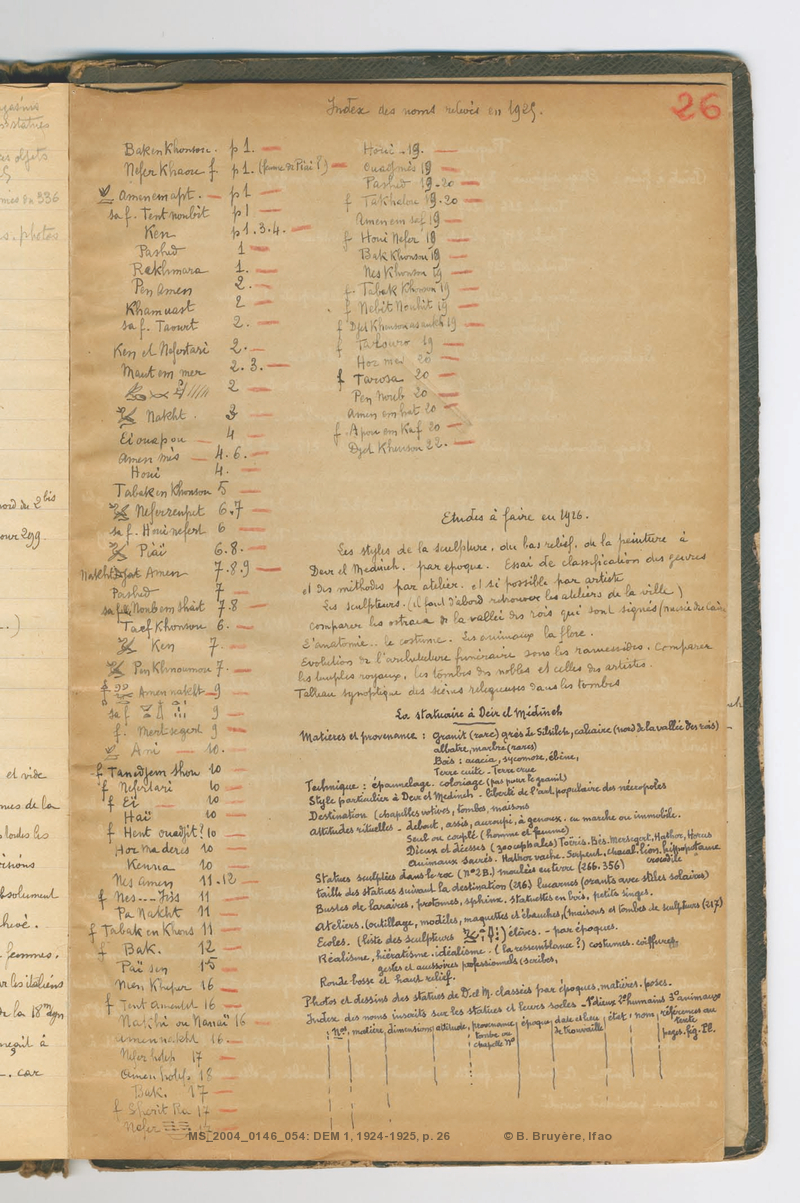 Index des noms relevés en 1925.
26
Baken Khonsou. p 1.
Nefer Khaou f p 1. (femme de Piaï ?)
Amenemapt. p 1
sa f. Tent noubit p 1
Ken p 1.3.4.
Pashed 1
Rekhmara 1.
Pen Amen 2.
Khamuast 2
sa f. Taourt 2.
Ken et Nefertari 2.
Maut em mer 2.3.
2
Nakht. 3
Ei ouapou 4
Amen mès 4.6.
Houi 4.
Tabaken Khonsou 5
Neferrenpet 6.7
sa f. Houi nefert 6
Piaï 6.8.
Amen 7.8.9
Pashed 7
Noub em Shait 7.8
Taef Khonsou 6.
Ken 7.
Pen Khnoumou 7.
Amen nakht 9
sa f. 9
f. Mert seger 9
Ani 10.
f Tanedjem Shou 10
f Nefertari 10
f Ei 10
Haï 10
f Hent ouadjit? 10
Hor Maderes 10
Kenna 10
Nes Amen 11.12
f Nes... 11
Pa Nakht 11
f Tabak en Khons 11
f Bak. 12
Païsen 15
Men Kheper 16
f Tent Ament 16
ou Nanaï 16
Amen nakht 16.
Nefer hotep 17
Amen hotep 18
Bak. 17
f Sherit Ra 17
Nefer
Houi 19.
Ouadjmès 19
Pashed 19.20
f Takhalou 19.20
Amen em saf 19
f Houi Nefer 19
Bak Khonsou 19
Nes Khonsou 19
f. Tabak Khonsou 19
f Nebit Noubit 19
f Djed Khonsou as ankh 19
f 19
Hor mer 20
f Tarosa 20
Pen Noub 20
Amen em hat 20
f. Apou em Kaf 20
Djed Khonsou 22.
Etudes à faire en 1926.
Les styles de la sculpture, du bas relief, de la peinture à
Deir el Medineh. par époque. Essai de classification des genres
et des méthodes par atelier. et si possible par artiste
Les sculpteurs. (il faut d'abord retrouver les ateliers de la ville)
Comparer les ostraca de la vallée des rois qui sont signés (musée du Caire
L'anatomie.. le costume. Les animaux la flore.
Evolution de l'architecture funéraire sous les ramessides. Comparer
les temples royaux, les tombes des nobles et celles des artistes.
Tableau synoptique des scènes religieuses dans les tombes
La statuaire à Deir el Médineh
Matières et provenance : Granit (rare) grès de Silsileh, calcaire (nord de la vallée des rois)
albatre, marbre (rares)
Bois : acacia, sycomore, ébène,
Terre cuite - Terre crue
Technique : épannelage. coloriage (pas pour le granit)
Style particulier à Deir el Medineh. liberté de l'art populaire des nécropoles
Destination (chapelles votives, tombes, maisons
Attitudes rituelles - debout, assis, accroupi, à genoux. en marche ou immobile.
Seul ou couplé (homme et femme)
Dieux et déesses (300 uphales) Toëris. Bès. Mersegert, Hathor, Horus
Animaux sacrés. Hathor vache. Serpent, chacal. lion. hippopotame.
crocodile
Statues sculptées dans le roc (N° 2B.) moulées en terre (266.356)
taille des statues suivant la destination (216) lucarnes (orants avec stèles solaires)
Bustes de laraires, protomes, sphinx. statuettes en bois, petits singes.
Ateliers. (outillage, modèles, maquettes et ébauches, (maisons et tombes de sculpteurs (217)
Ecoles. (liste des sculpteurs élèves. - par époques.
Réalisme, hiératisme. idéalisme. (la ressemblance ?) costumes. coiffures,
gestes et accessoires professionnels (scribes,
Ronde bosse et haut relief.
Photos et dessins des statues de D. el M. classées par époques, matières. poses.
Index des noms inscrits sur les statues et leurs socles - 1° dieux 2° humains 3° animaux
Nos, matière, dimensions, attitude, provenance, époque, date et lieu, état, noms, références au
tombe ou de trouvaille texte
chapelle N° pages. fig. Pl.
MS_2004_0146_054: DEM 1, 1924-1925, p. 26
© B. Bruyère, Ifao